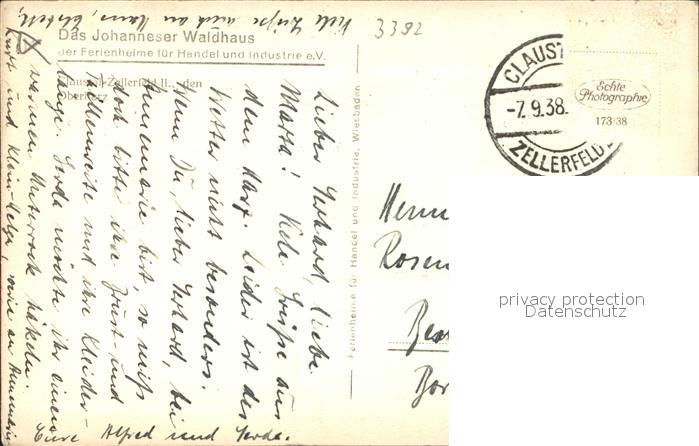 3392
Das Johanneser Waldhaus
der Ferienheime für Handel und Industrie e.V.
Clausthal-Zellerfeld II., den
Oberharz
CLAUST
-7.9.38.
ZELLERFELD
Echte
Photographie
173 38
Ferienheime für Handel und Industrie, Wiesbaden
Lieber Gerhard, liebe
Marta! Viele Grüße aus
dem Harz. Leider ist das
Wetter nicht besonders.
Wenn Du, lieber Gerhard, bei
Annemarie bist, so miß
doch bitte ihre Brust- und
Taillenweite und ihre Kleider-
länge. Gerda möchte ihr einen
warmen Unterrock häkeln.
Viele Grüße auch an
Kurt und klein Helga, sowie an
Eure Alfred und Gerda.
Herrn
Rosen
Ber
Bor
privacy protection
Datenschutz